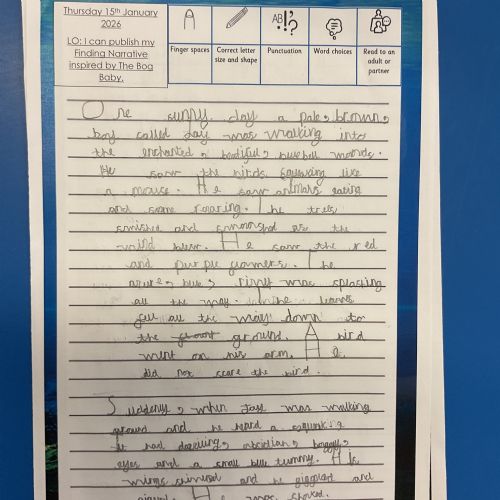 Thursday 15th January 2026
LO: I can publish my Finding Narrative inspired by The Bog Baby.
Finger spaces
Correct letter size and shape
AB
Punctuation
Word choices
Read to an adult or partner
One sunny day a pale, brown,
boy called day was walking into
the enchanted, beatiful, blue bell woods.
He saw the birds squeaking like
a mouse. He saw animals eating
and some roaring. The trees
swished and swooshed as the
wind blew. He saw the red
and purple flowers. The
azure, blue, river was splashing
all the way. The leaves
fell all the way down to
the ground. A bird
went on his arm. He
did not scare the bird.
Suddenly, when was walking
ground and he heard a
He had dazzling, obsidian, boggly,
eyes and a small blue tummy. His
wings and he and
He was shocked.